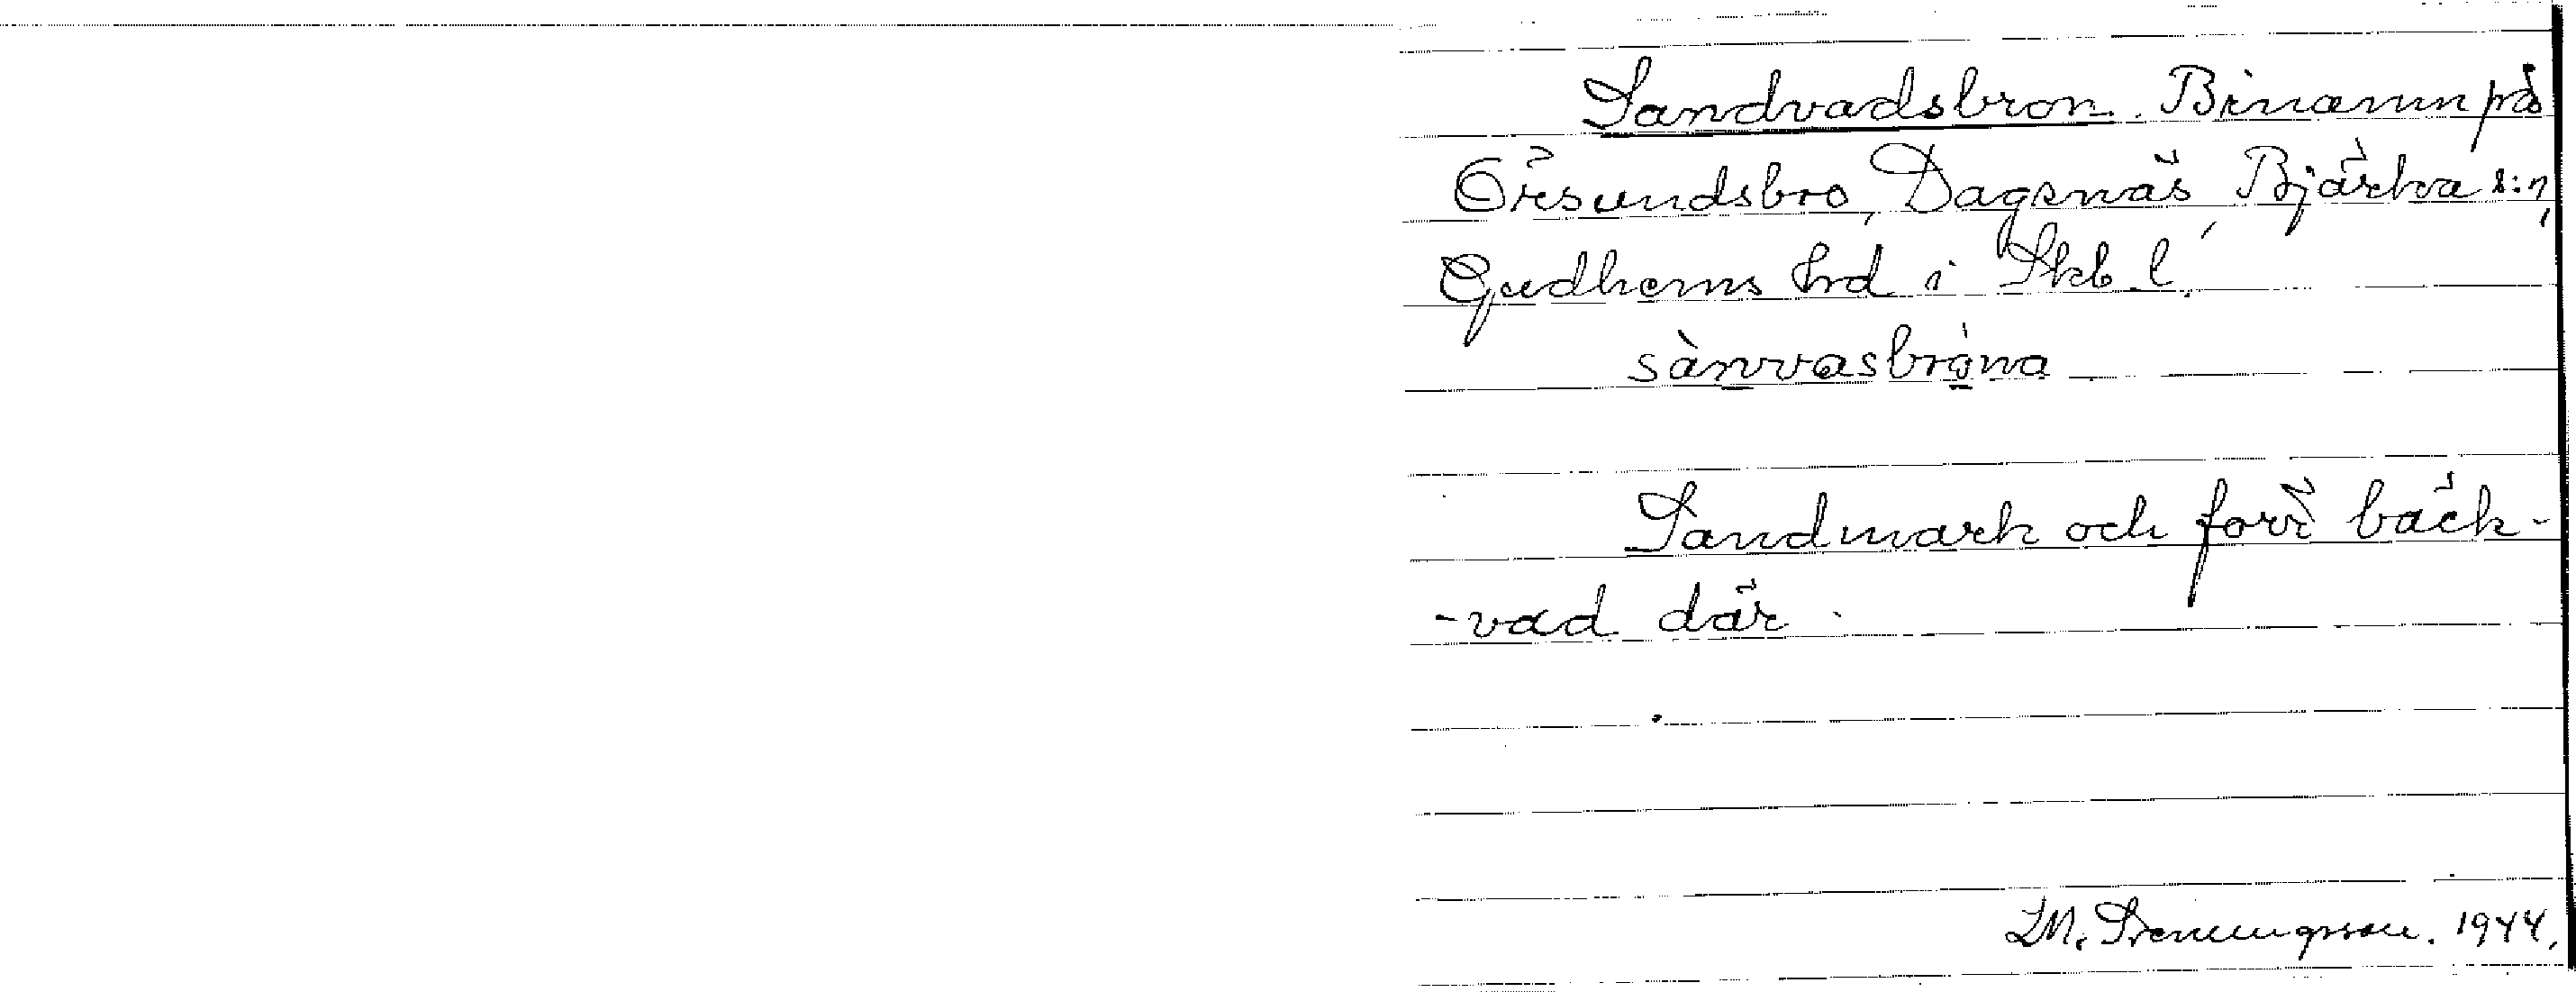 Sandvadsbron. Binamn på
Öresundsbro, Dagsnäs, Bjärka s:n,
Gudhems hrd i Skb. l.
sànvasbròna
Sandmark och förr bäck-
-vad där.
1944.